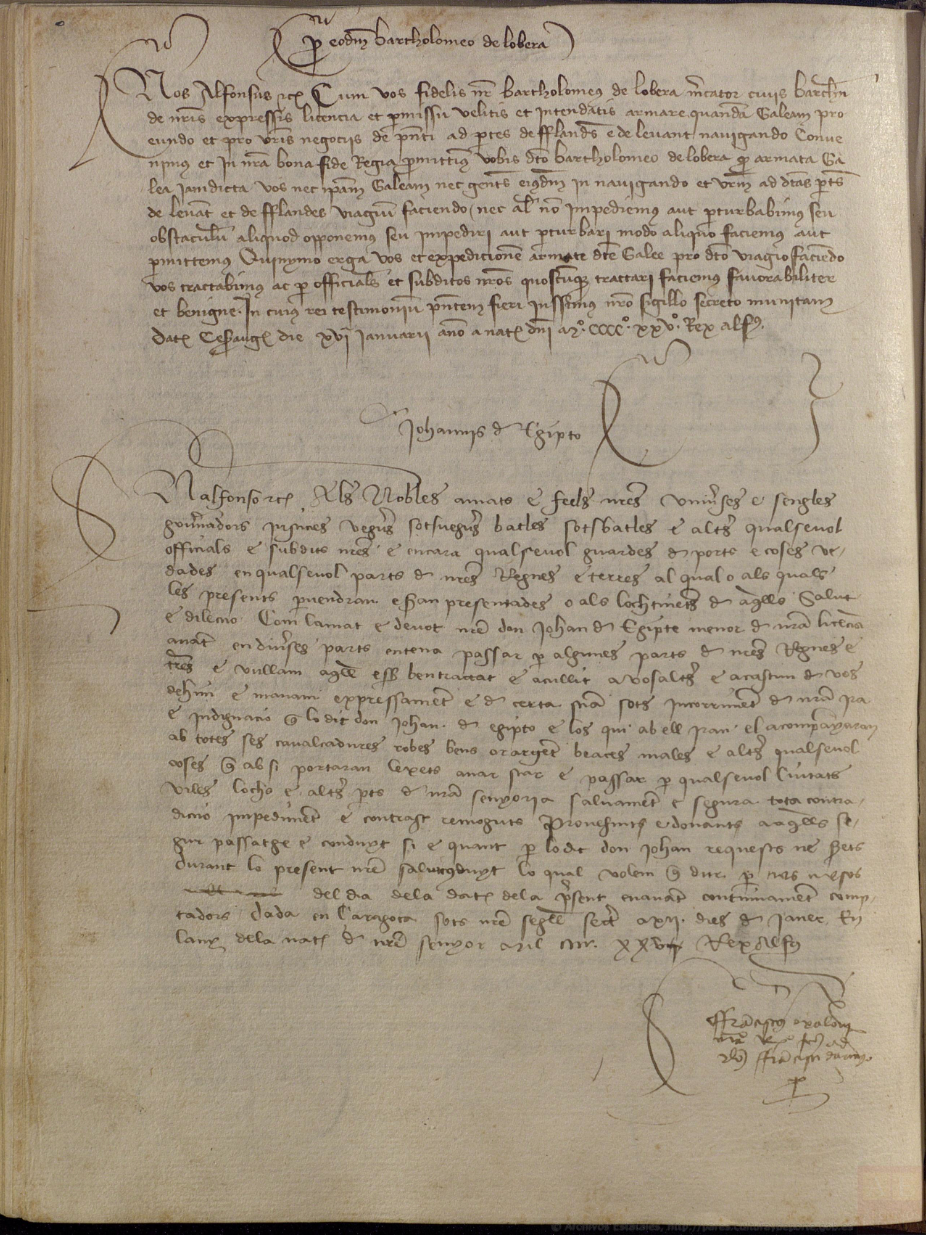 p eodm bartholomeo de lobera
Nos Alfonsus etc Cum vos fidelis nr bartholomeus de lobera mcator civis barchn
de nris expressis licencia et pmissu velitis et intendatis armare quandam Galeam pro
eundo et pro vris negociis de pnti ad ptes de fflandes e de levant navigando Conve
nimus et in nra bona fide Regia pmittimus vobis dto bartholomeo de lobera p armata Ga
lea iamdicta vos nec ipam Galeam nec gentes eiusdm in navigando et vrm ad dtas ptes
de levant et de fflandes viagium faciendo nec al no impediemus aut pturbabimus seu
obstaculum aliquod opponemus seu impediri aut pturbari modo aliquo faciemus aut
pmittemus Quinymo erga vos et expedicione armate dte Galee pro dto viagio faciendo
vos tractabimus ac p officiales et subditos nros quoscumque tractari faciemus favorabiliter
et benigne In cuius rei testimonium pntem fieri iussimus nro sigillo secreto munitam
Dat Cesaraug die xvi Ianuarii ano a nat dni mº ccccº xxvº Rex alfs
Johannis d Egipto
N alfonso etc Als Nobles amats e feels nres universes e sengles
governadors justicies veguers sotsveguers batles sotsbatles e altres qualsevol
officials e subdits nres e encara qualsevol guardes d ports e coses ve
dades en qualsevol parts d nres Regnes e terres al qual o als quals
les presents pvendran e seran presentades o als lochtinents d aqlls Salut
e dileccio Com lamat e devot nre don Johan d Egipte menor d nra licencia
anant en diverses parts entena passar p algunes parts d nres Regnes e
tres e vullam aqll esser ben tractat e acullit a vosaltres e a cascun d vos
dehim e manam expressament e d certa sciencia sots incorriment d nra ira
e indignacio q lo dit don Johan d egipto e los qui ab ell iran el acompanyaran
ab totes ses cavalcadures robes bens or argent beaces males e altres qualsevol
coses q ab si portaran lexets anar star e passar p qualsevol Ciutats
viles lochs e altres pts d nra senyoria salvament e segura tota contra
diccio impediment e contrast remoguts Provehints e donants a aqlls se
gur passatge e conduyt si e quant p lo dit don Johan requests ne serets
Durant lo present nre salvconduyt lo qual volem q dur p tres mesos
del dia dela dat dela present enavant continuament comp
tadors Dada en Caragoca sots nre segell secret a xii dies d Janer En
lany dela nat d nre senyor Mil cccc xxv Rex Alfs
ffranciscus